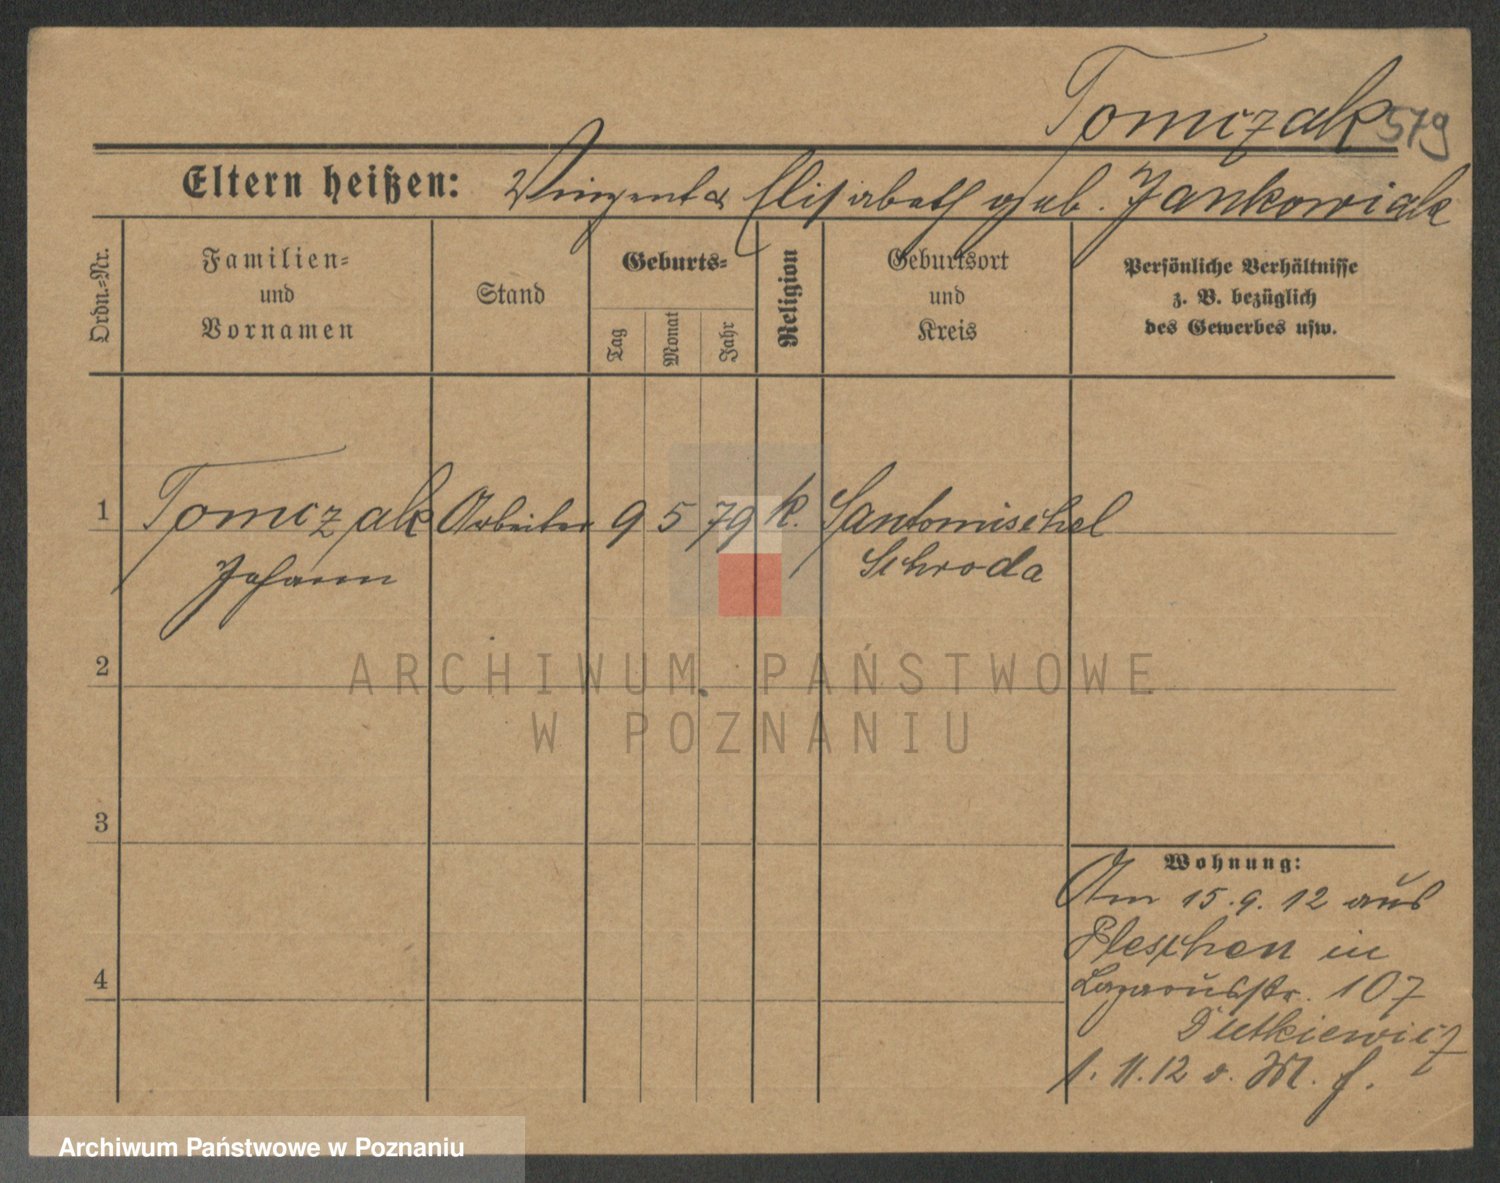 Tomczak 579
Eltern heißen: Vinzent & Elisabeth geb. Jankowiak
Ordn.-Nr.
Familien-
und
Vornamen
Stand
Geburts-
Tag
Monat
Jahr
Religion
Geburtsort
und
Kreis
Persönliche Verhältnisse
z. B. bezüglich
des Gewerbes usw.
1 Tomczak Arbeiter 9 5 79 k. Santomischel
Johann Schroda
2
ARCHIWUM PAŃSTWOWE
W POZNANIU
3
Wohnung:
Am 15.9.12 aus
Pleschen in
4
Lazarusstr. 107
Dutkiewicz
1.11.12 v. M. f.
Archiwum Państwowe w Poznaniu